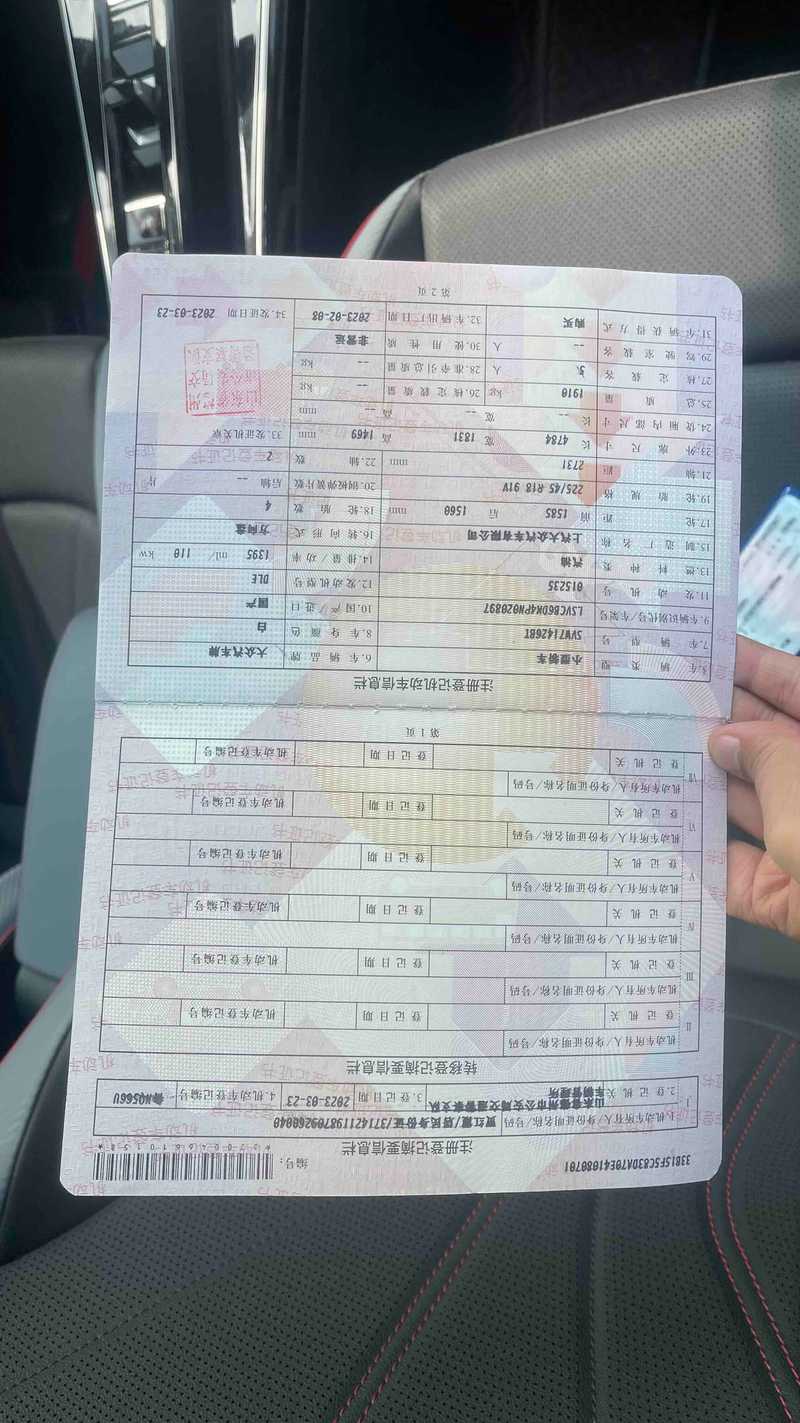 33B15F5C83DA70E41080701
编号:
注册登记摘要信息栏
I 1.机动车所有人/身份证明名称/号码 贾红霞/居民身份证/371421198709260040
2.登记机关 山东省德州市公安局交通警察支队车辆管理所 3.登记日期 2023-03-23 4.机动车登记编号 鲁NQ566U
转移登记摘要信息栏
II 机动车所有人/身份证明名称/号码
登记机关 登记日期 机动车登记编号
III 机动车所有人/身份证明名称/号码
登记机关 登记日期 机动车登记编号
IV 机动车所有人/身份证明名称/号码
登记机关 登记日期 机动车登记编号
V 机动车所有人/身份证明名称/号码
登记机关 登记日期 机动车登记编号
VI 机动车所有人/身份证明名称/号码
登记机关 登记日期 机动车登记编号
VII 机动车所有人/身份证明名称/号码
登记机关 登记日期 机动车登记编号
第1页
注册登记机动车信息栏
5.车辆类型 小型轿车 6.车辆品牌 大众汽车牌
7.车辆型号 SVW71426BT 8.车身颜色 白
9.车辆识别代号/车架号 LSVCB6DK4PN020897 10.国产/进口 国产
11.发动机号 015235 12.发动机型号 DLE
13.燃料种类 汽油 14.排量/功率 1395 ml/ 110 kw
15.制造厂名称 上汽大众汽车有限公司 16.转向形式 方向盘
17.轮距 前 1585 后 1560 mm 18.轮胎数 4
19.轮胎规格 225/45 R18 91V 20.钢板弹簧片数 后轴 -- 片
21.轴距 2731 mm 22.轴数 2
23.外廓尺寸 长 4784 宽 1831 高 1469 mm 33.发证机关章
24.货厢内部尺寸 长 -- 宽 -- 高 -- mm
25.总质量 1910 kg 26.核定载质量 -- kg
27.核定载客 5 人 28.准牵引总质量 -- kg
29.驾驶室载客 -- 人 30.使用性质 非营运
31.车辆获得方式 购买 32.车辆出厂日期 2023-02-08 34.发证日期 2023-03-23
第2页